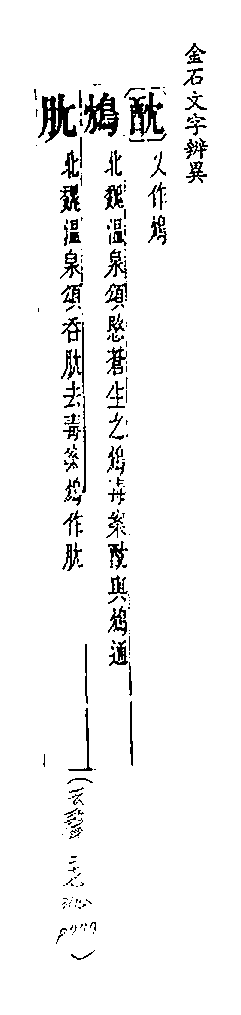 金石文字辨異
酖 又作鴆
鴆 北魏溫泉頌愍蒼生之鴆毒案酖與鴆通
肬 北魏溫泉頌吞肬去毒案鴆作肬